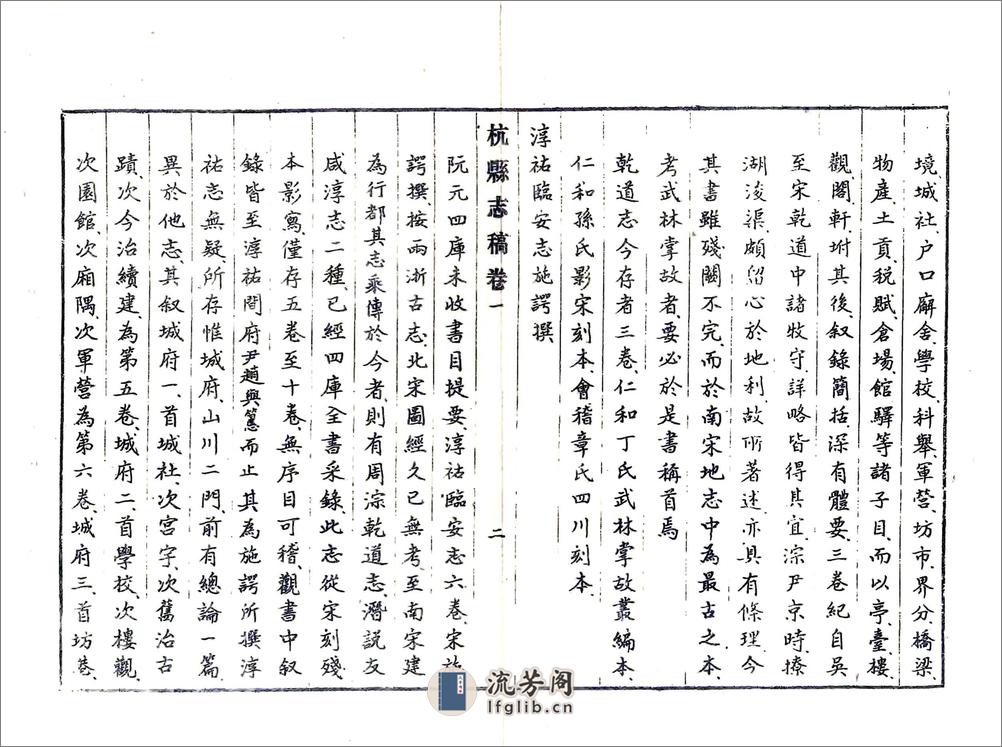 境城社、户口、廨舍、學校、科舉、軍營、坊市、界分、橋梁、
物產、土貢、稅賦、倉場、館驛等諸子目、而以亭臺樓
觀閣軒坿其後、叙錄簡括、深有體要、三卷紀自吳
至宋乾道中諸牧守、詳略皆得其宜、淙尹京時、撩
湖浚渠、頗留心於地利、故所著述亦具有條理、今
其書雖殘闕不完、而於南宋地志中為最古之本、
考武林掌故者、要必於是書稱首焉
乾道志今存者三卷、仁和丁氏武林掌故叢編本、
仁和孫氏影宋刻本、會稽章氏四川刻本、
淳祐臨安志施諤撰
杭縣志稿卷一
二
阮元四庫未收書目提要、淳祐臨安志六卷、宋施
諤撰、按兩浙古志、北宋圖經久已無考、至南宋建
為行都、其志乘傳於今者、則有周淙乾道志、潛說友
咸淳志二種、已經四庫全書采錄、此志從宋刻殘
本影寫、僅存五卷至十卷、無序目可稽、觀書中叙
錄皆至淳祐間府尹趙與𥲅而止、其為施諤所撰淳
祐志無疑、所存惟城府、山川二門、前有總論一篇、
異於他志、其叙城府一、首城社、次宮宇、次舊治古
蹟、次今治續建、為第五卷、城府二、首學校、次樓觀、
次園館、次廂隅、次軍營、為第六卷、城府三、首坊巷、
流芳閣
lfglib.cn